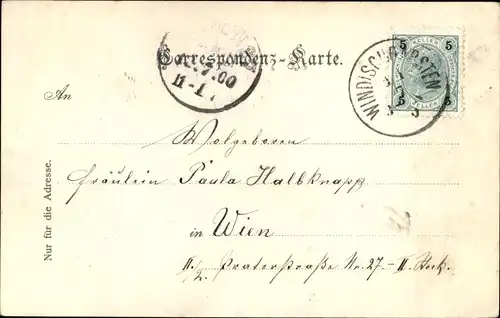 Correspondenz-Karte.
5 5
HELLER
5 5
WINDISCHGARSTEN
7.00
11-1
An
Wolgeboren
Fräulein Paula Halbknapp
in Wien
II./2. Praterstraße Nr. 27 - II. Stock.
Nur für die Adresse.